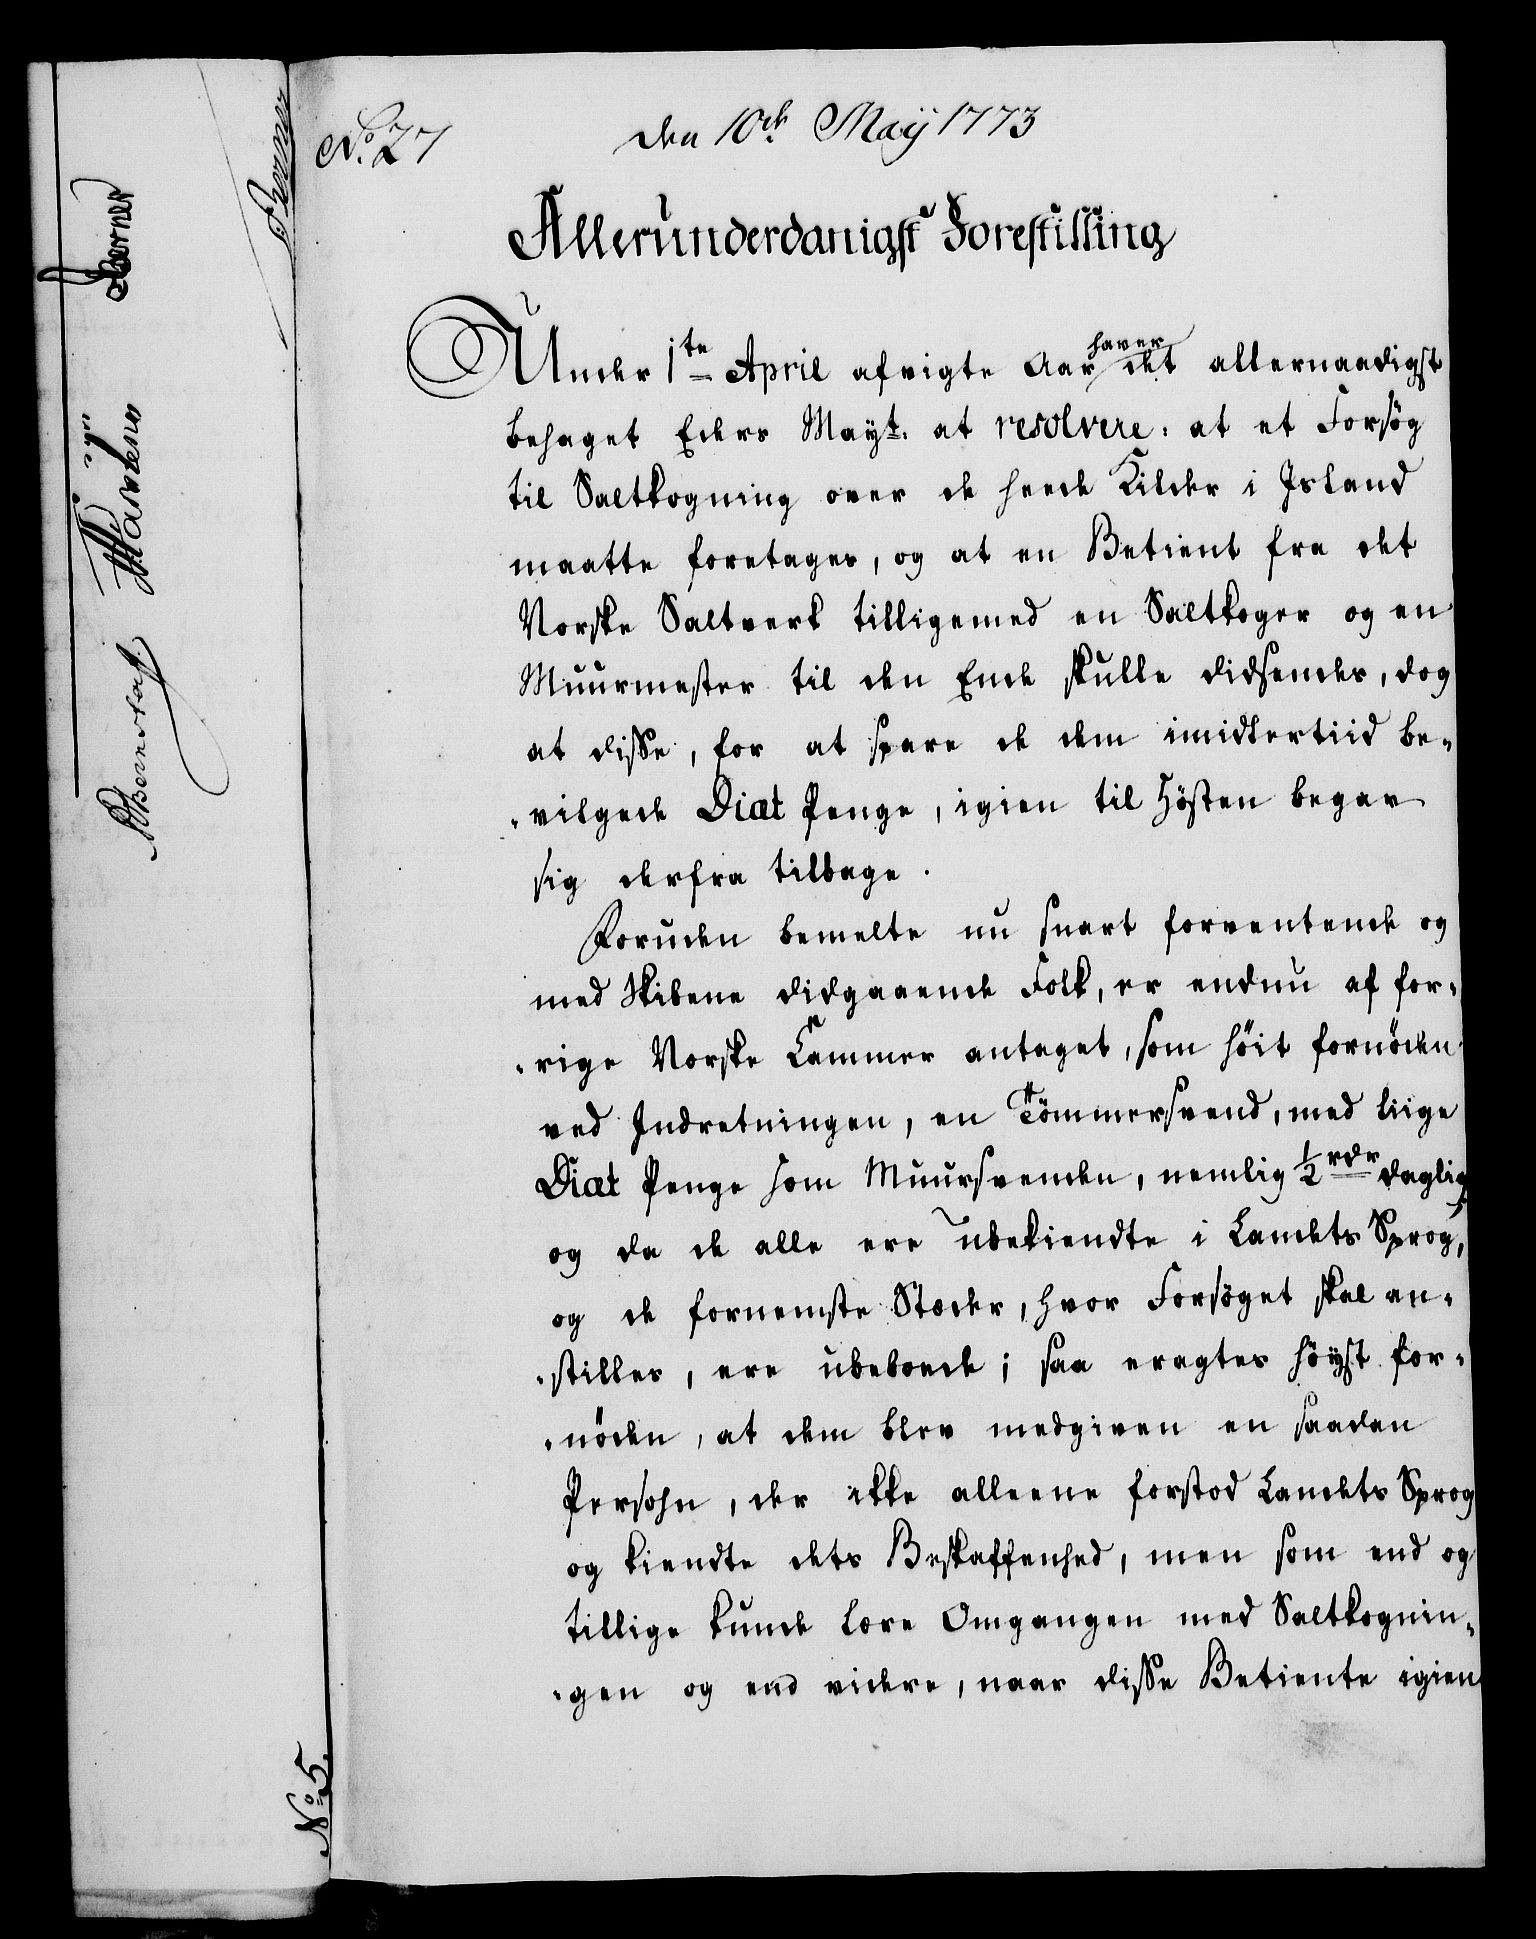 No. 27
den 10de Maÿ 1773
Allerunderdanigst Forestilling
Under 1te April afvigte Aar haver det allernaadigst
behaget Eders Mayt. at resolvere: at et Forsøg
til Saltkogning over de heede Kilder i Island
maatte foretages, og at en Betient fra det
Norske Saltverk tilligemed en Saltkoger og en
Muurmester til den Ende skulle didsendes, dog
at disse, for at spare de dem imidlertiid be-
-vilgede Diæt Penge, igien til Høsten begav
sig derfra tilbage.
Foruden bemelte nu snart forventende og
med Skibene didgaaende Folk, er endnu af for-
-rige Norske Cammer antaget, som høit fornøden
ved Indretningen, en Tømmersvend, med liige
Diæt Penge som Muursvenden, nemlig 1/2 rdr daglig
og da de alle ere ubekiendte i Landets Sprog,
og de fornemste Stæder, hvor Forsøget skal an-
-stilles, ere ubeboede; saa eragtes høyst for-
-nøden, at dem blev medgiven en saadan
Persohn, der ikke alleene forstod Landets Sprog
og kiendte dets Beskaffenhed, men som end og
tillige kunde lære Omgangen med Saltkognin-
-gen og end videre, naar disse Betiente igien
No. 5.